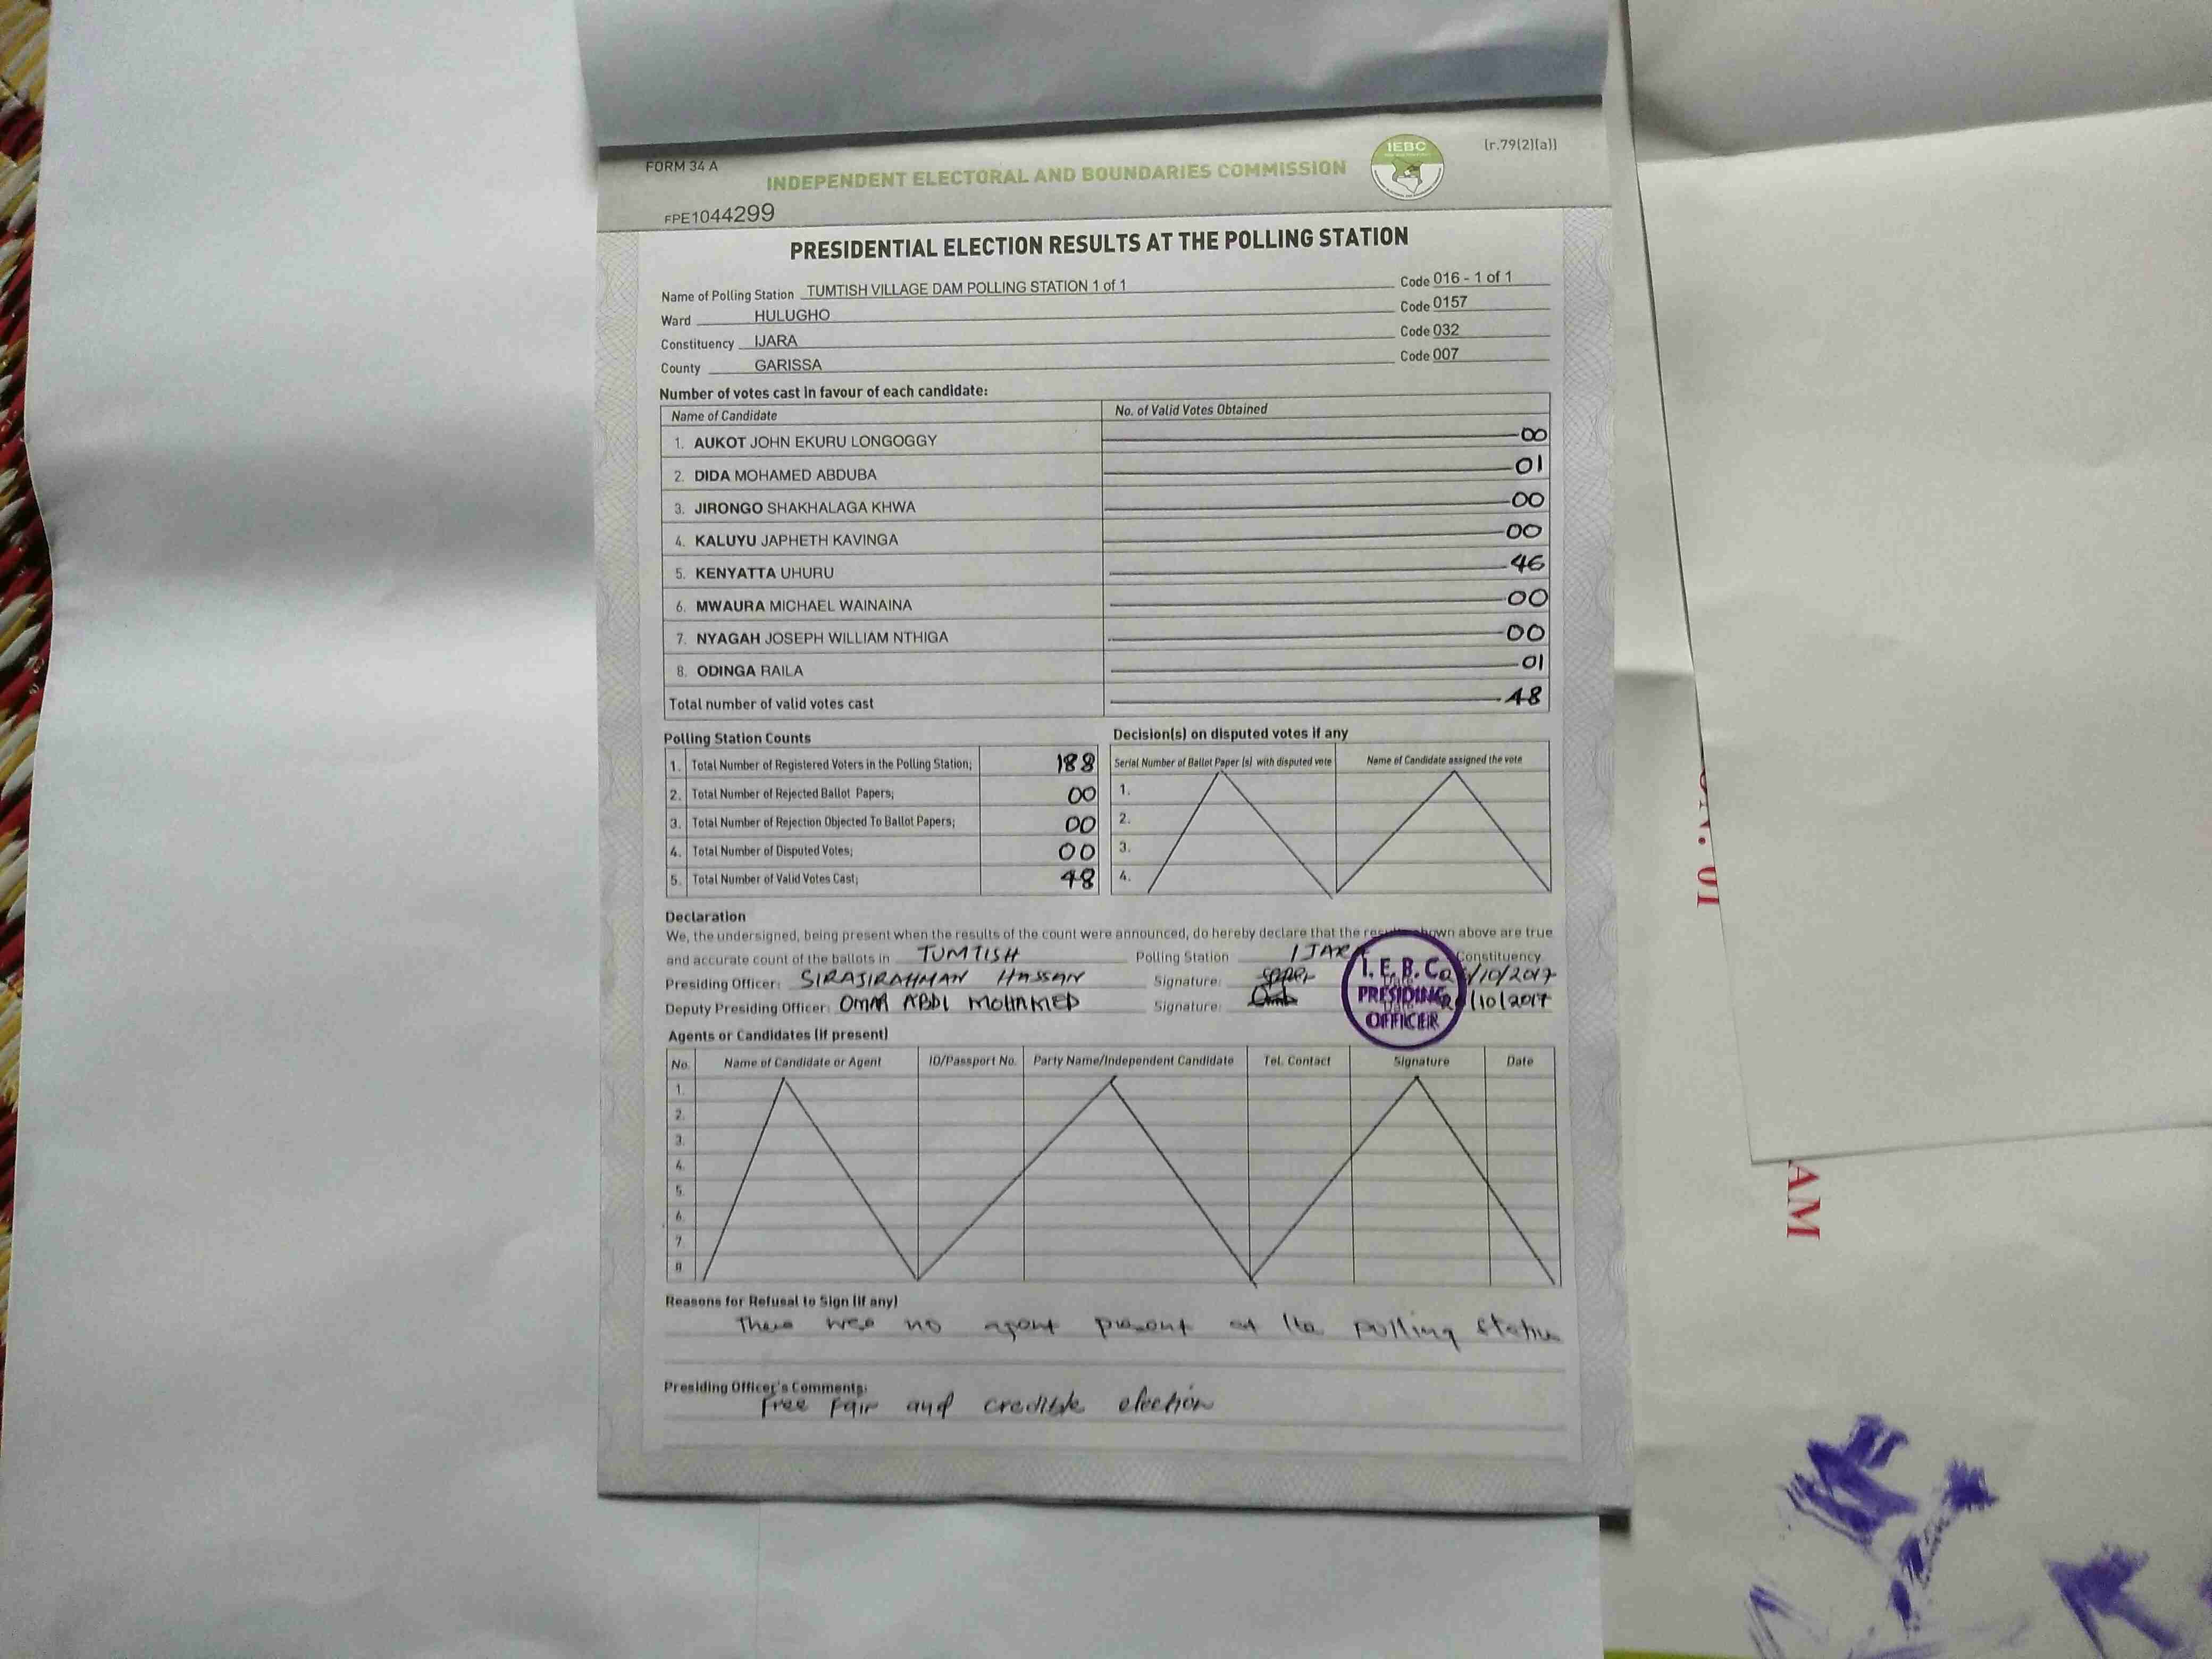 FORM 34 A
INDEPENDENT ELECTORAL AND BOUNDARIES COMMISSION
IEBC
[r.79(2)(a)]
FPE1044299
PRESIDENTIAL ELECTION RESULTS AT THE POLLING STATION
Name of Polling Station TUMTISH VILLAGE DAM POLLING STATION 1 of 1 Code 016 - 1 of 1
Ward HULUGHO Code 0157
Constituency IJARA Code 032
County GARISSA Code 007
Number of votes cast in favour of each candidate:
Name of Candidate No. of Valid Votes Obtained
1. AUKOT JOHN EKURU LONGOGGY 00
2. DIDA MOHAMED ABDUBA 01
3. JIRONGO SHAKHALAGA KHWA 00
4. KALUYU JAPHETH KAVINGA 00
5. KENYATTA UHURU 46
6. MWAURA MICHAEL WAINAINA 00
7. NYAGAH JOSEPH WILLIAM NTHIGA 00
8. ODINGA RAILA 01
Total number of valid votes cast 48
Polling Station Counts
1. Total Number of Registered Voters in the Polling Station; 188
2. Total Number of Rejected Ballot Papers; 00
3. Total Number of Rejection Objected To Ballot Papers; 00
4. Total Number of Disputed Votes; 00
5. Total Number of Valid Votes Cast; 48
Decision(s) on disputed votes if any
Serial Number of Ballot Paper (s) with disputed vote Name of Candidate assigned the vote
1.
2.
3.
4.
Declaration
We, the undersigned, being present when the results of the count were announced, do hereby declare that the results shown above are true
and accurate count of the ballots in TUMTISH Polling Station IJARA Constituency
Presiding Officer: SIRAJIRAHMAN HASSAN Signature: /10/2017
Deputy Presiding Officer: OMAR ABDI MOHAMED Signature: /10/2017
I. E. B. C
PRESIDING
OFFICER
Agents or Candidates (if present)
No. Name of Candidate or Agent ID/Passport No. Party Name/Independent Candidate Tel. Contact Signature Date
1.
2.
3.
4.
5.
6.
7.
8
Reasons for Refusal to Sign (if any)
There was no agent present at the polling station
Presiding Officer's Comments:
Free Fair and credible election
01
AM